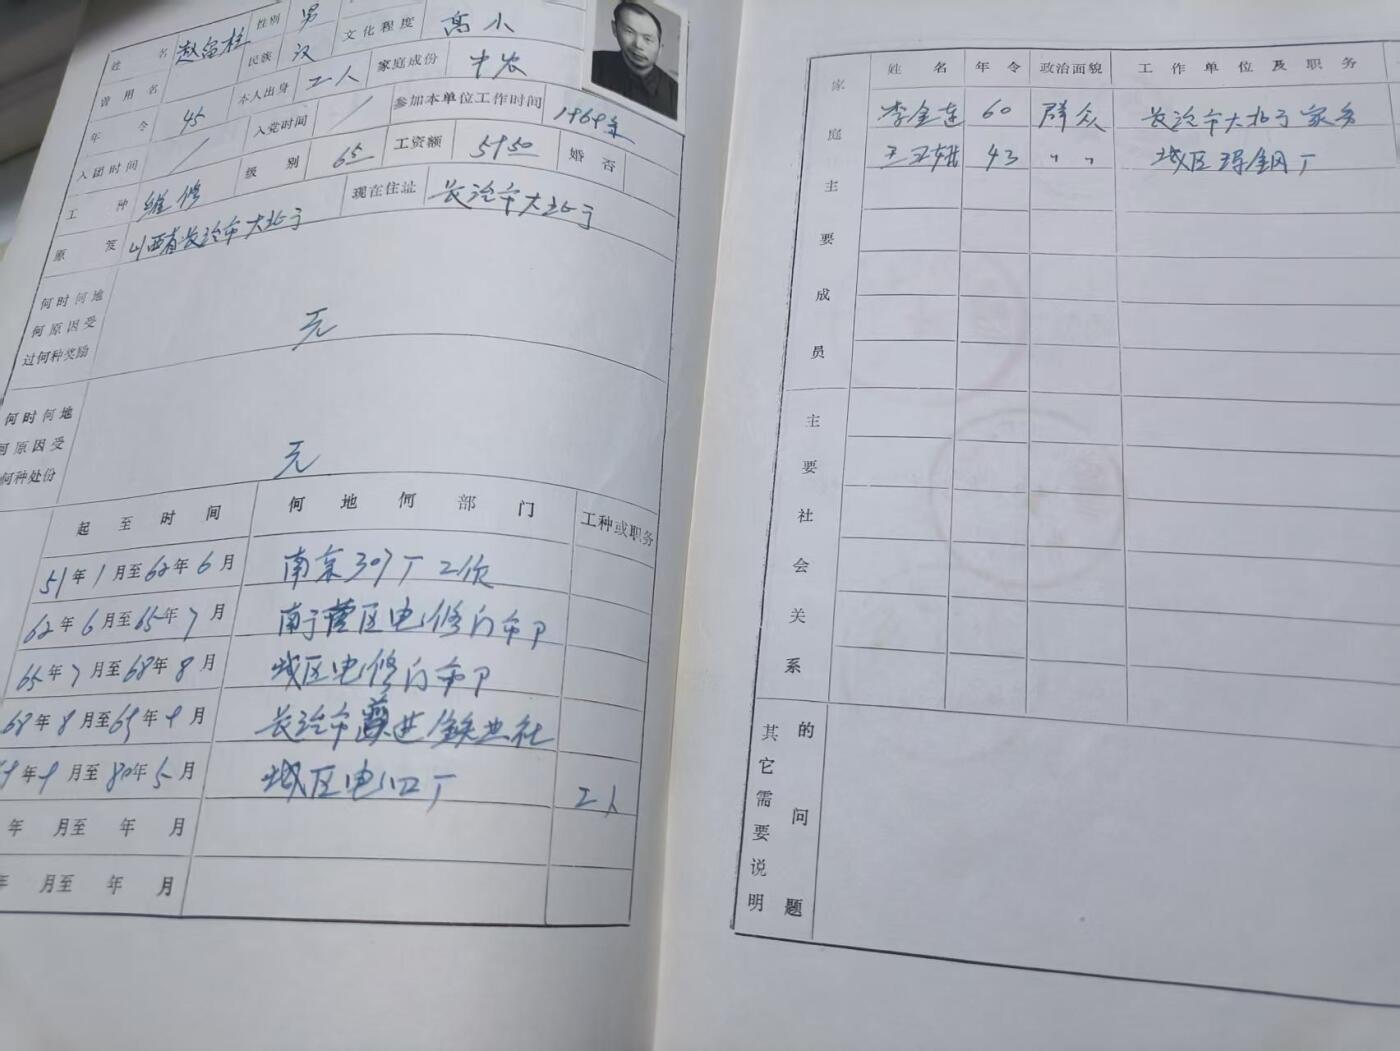 姓名 赵富柱 性别 男
民族 汉 文化程度 高小
曾用名 本人出身 工人 家庭成份 中农
年令 45 入党时间 / 参加本单位工作时间 1969年
入团时间 / 级别 65 工资额 5950 婚否
工种 维修 现在住址 长治市大北于
原笈 山西省长治市大北于
何时何地
何原因受
过何种奖励
无
何时何地
何原因受
何种处份
无
起至时间 何地何部门 工种或职务
51年1月至62年6月 南京307厂工作
62年6月至65年7月 南于营区电修门市卩
65年7月至68年8月 城区电修门市卩
68年8月至69年9月 长治市跃进铁业社
年9月至80年5月 城区电四厂 工人
年 月至 年 月
年 月至 年 月
家庭主要成员
姓名 年令 政治面貌 工作单位及职务
李金莲 60 群众 长治市大北于家务
43 〃 〃 城区 钢厂
主要社会关系
其它需要说明的问题